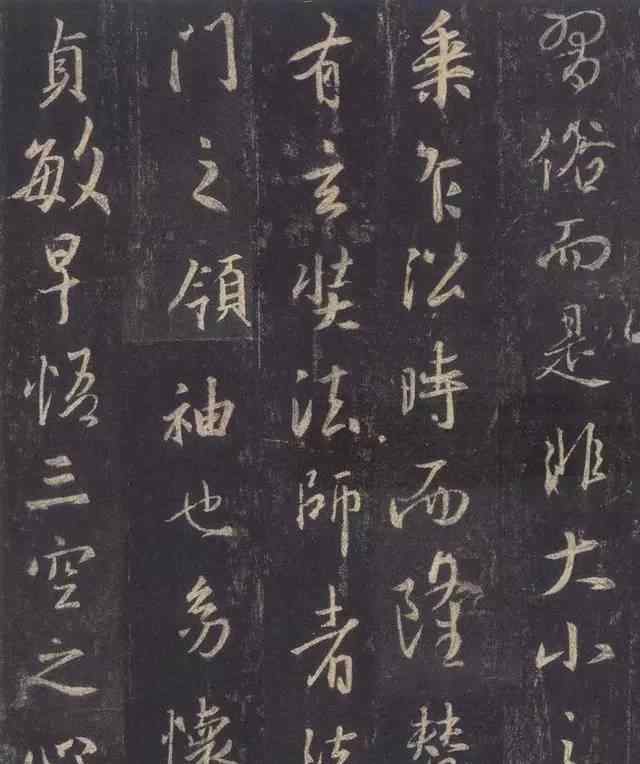 習俗而是非大小之
乘乍沿時而隆替
有玄奘法師者法
門之領袖也幼懷
貞敏早悟三空之心